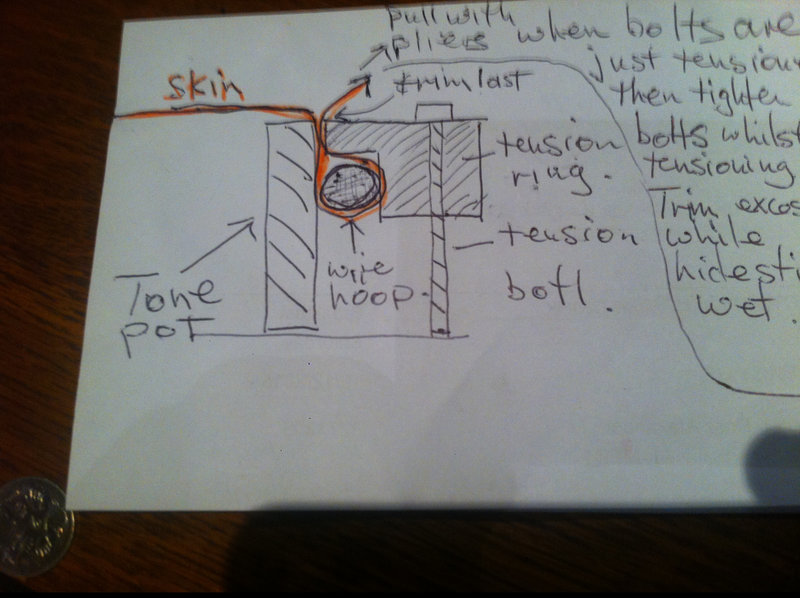 pull with
pliers when bolts are
just tension
then tighten
bolts whilst
tensioning
Trim exces
while
hide sti
wet.
skin
trim last
tension
ring.
tension
botl.
wire
hoop.
Tone
pot